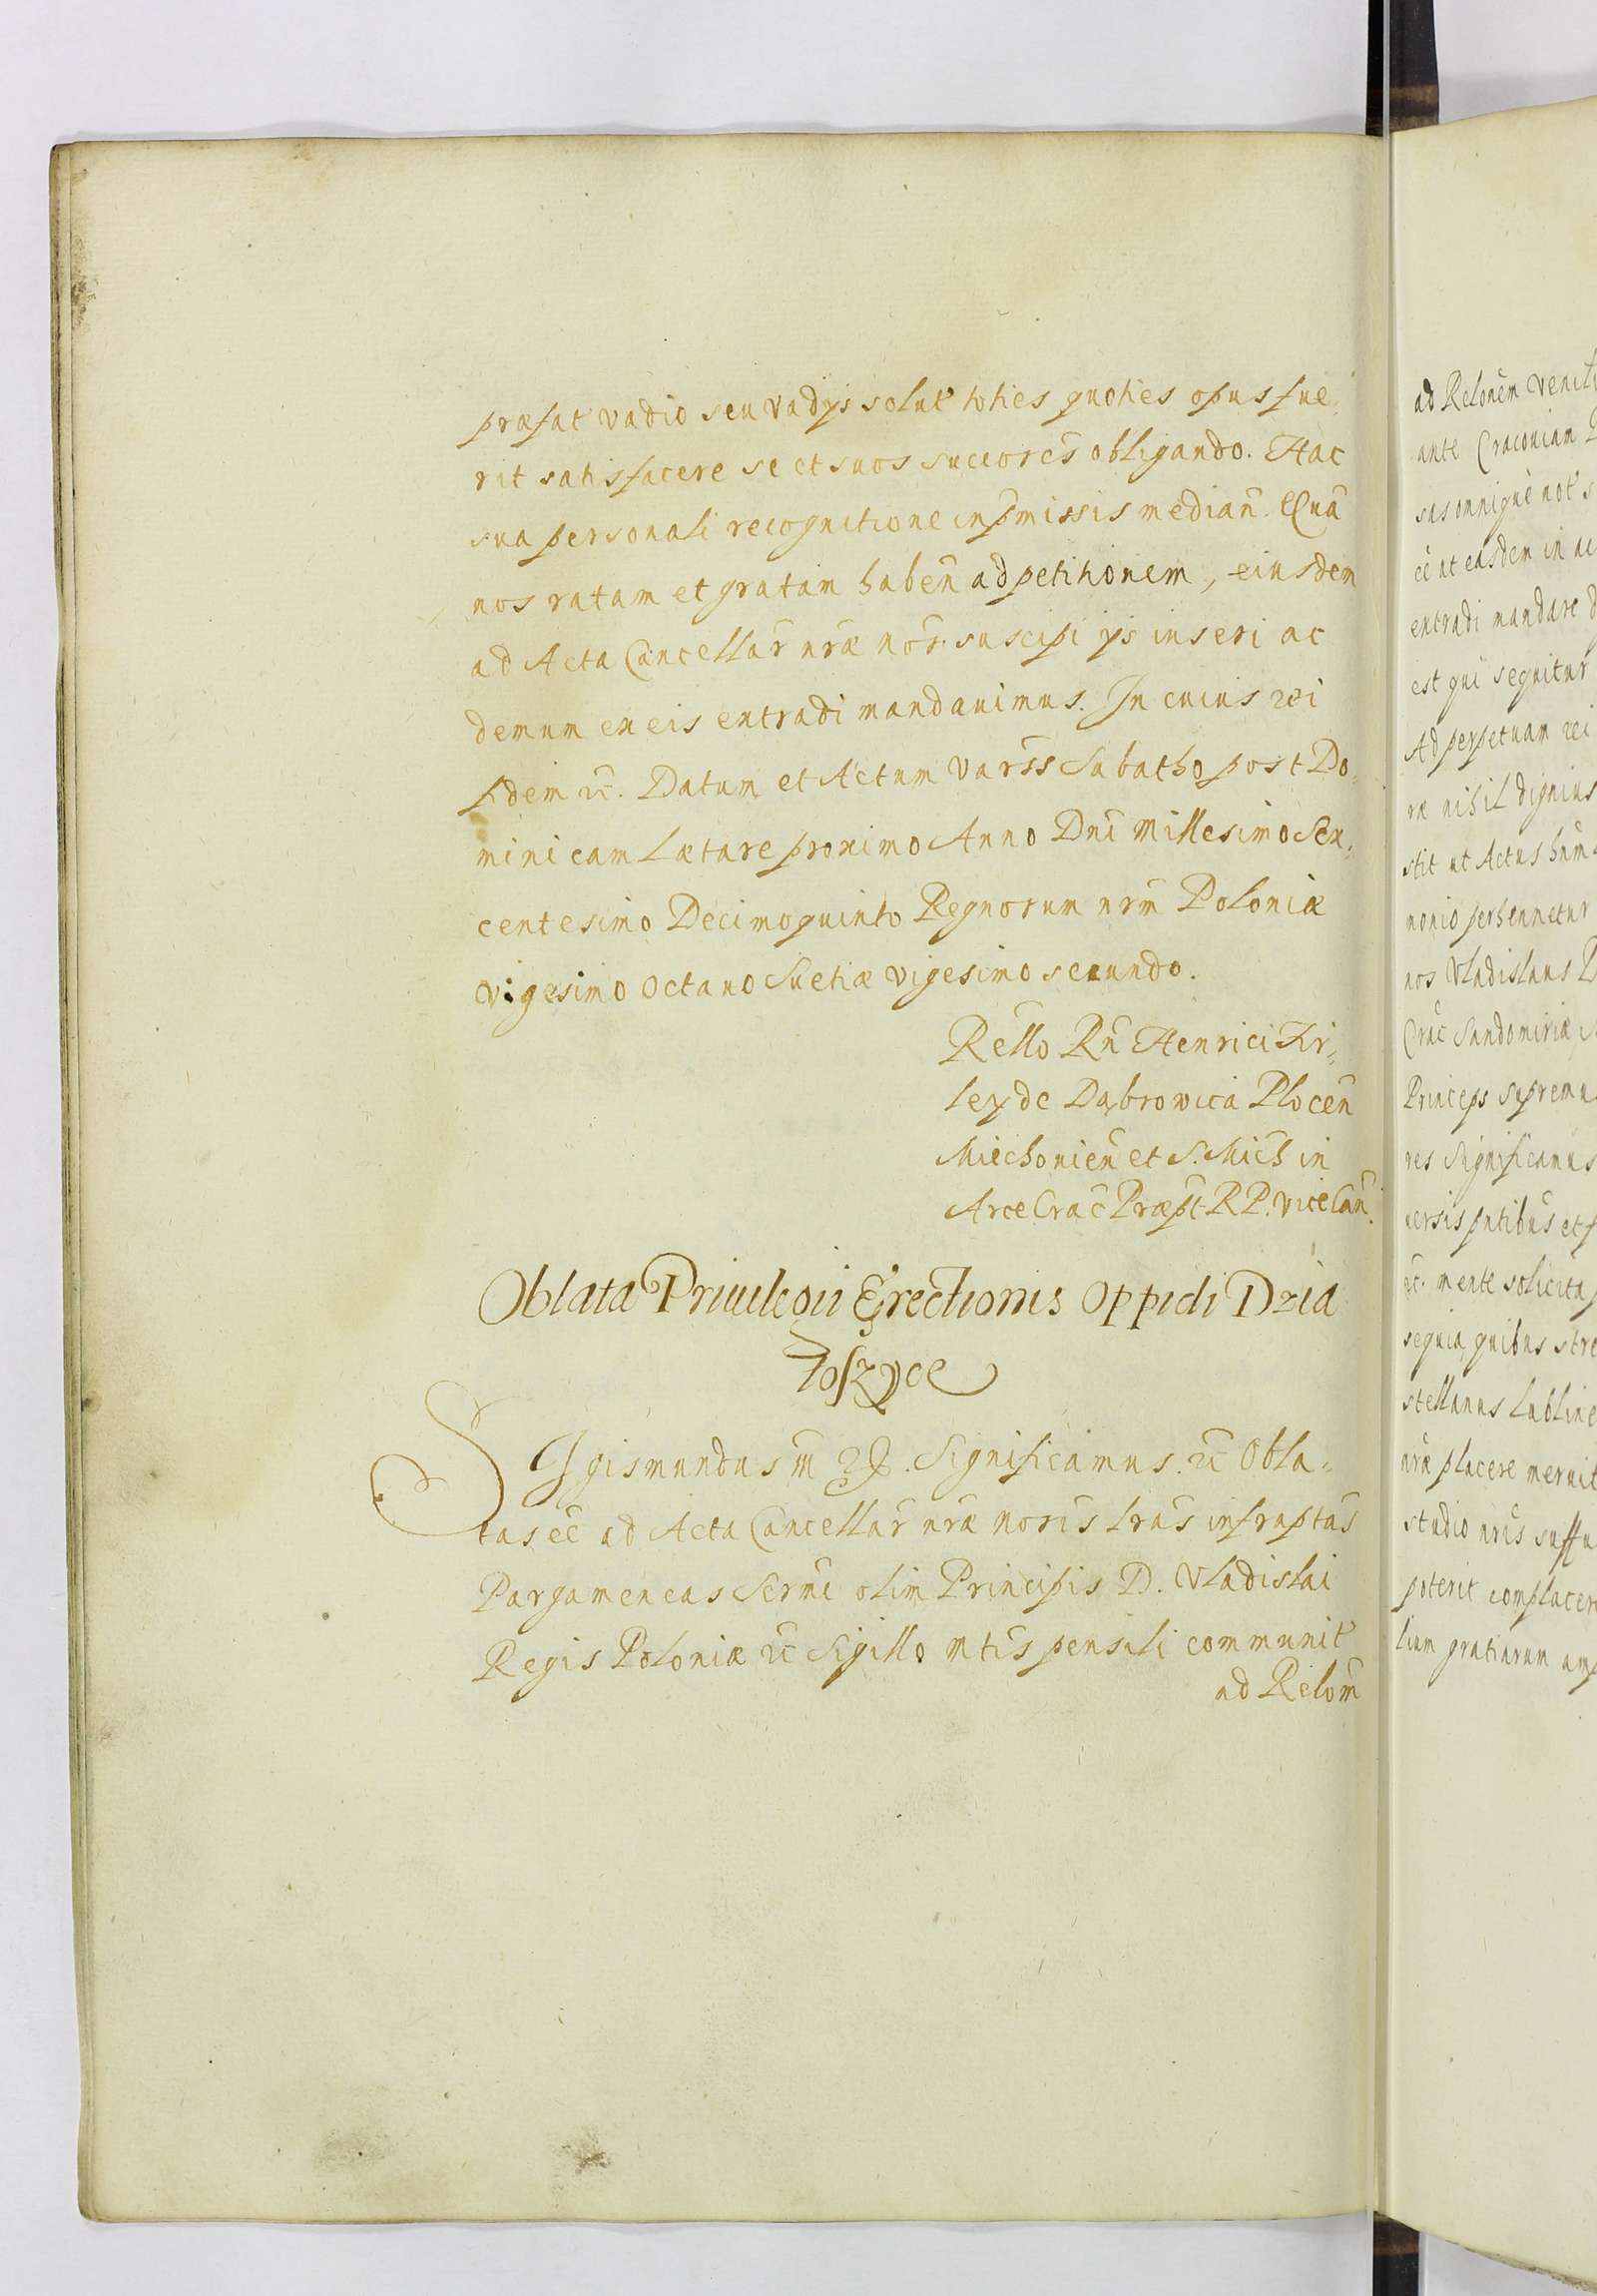 præfat vadio seu vadÿs solut toties quoties opus fue,
rit satisfacere se et suos succores obligando. Hac
sua personali recognitione in pmissis median̄. Quā
nos ratam et gratam haben̄ ad petitionem, eiusdem
ad Acta Cancellar̄ nr̄æ nor̄. suscipi ÿs inseri ac
demum ex eis extradi mandauimus. In cuius rei
fidem &c. Datum et Actum Varss Sabatho post Do,
minicam Lætare proximo Anno Dnī Millesimo Sex,
centesimo Decimoquinto Regnorum nrm̄ Poloniæ
vigesimo octauo Suetiæ vigesimo secundo.
Rello Rn̄ Henrici Fir,
ley de Dąbrowica Plocen̄
Miechouien̄ et S. Mich̄ in
Arce Crac̄ Præpt̄ R P. vice Can̄.
Oblata Priuilegii Erectionis Oppidi Dzia
łoszyce
SIgismundus III &. Significamus. &c Obla,
tas eē ad Acta Cancellar̄ nr̄æ noris̄ lr̄as infraptas̄
Pargameneas Sermī olim Principis D. Vladislai
Regis Poloniæ &c Sigillo Mtis̄ pensili communit
ad Relom̄
ad Relonēm
ante Cracouiam
sas omnique not s
eē ut easdem in
extradi mandare
est qui sequitur
Ad perpetuam rei
ræ nihil dignius
stit ut Actus hum̄
monio perhennetur
nos Vladislaus
Crac̄ Sandomiriæ
Princeps supremu
res Significamus
uersis pntibus̄ et
&c. mente solicita
sequia, quibus
stellanus Lubline
nr̄æ placere meruit
studio nris̄
poterit complacere
lium gratiarum